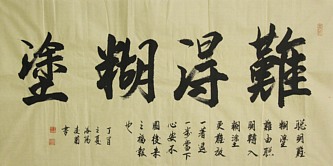 難得糊塗
聰明難
糊塗
難由聰
明轉入
糊塗
更難放
一著退
一步當下
心安不
圖後來
之福報
也
丁酉